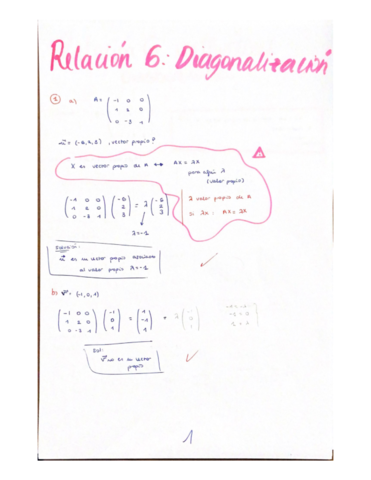 Relación 6: Diagonalización
① a) A = ( -1 0 0
1 2 0
0 -3 1 )
, ¿vector propio?
X es vector propio de A ↔ AX = λX
para algún λ
(valor propio)
λ valor propio de A
si ∃x : AX = λX
( -1 0 0
1 2 0
0 -3 1 )
λ = -1
es un vector propio asociado
al valor propio λ = -1
b) v = (-1, 0, 1)
( -1 0 0
1 2 0
0 -3 1 ) ( -1
0
1 ) = ( 1
-1
1 ) ≠ λ ( -1
0
1 )
Sol:
v no es un vector
propio
1